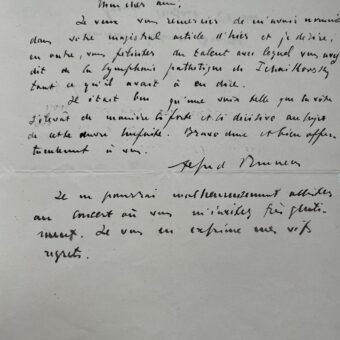 Mon cher ami,
Je veux vous remercier de m'avoir nommé
dans votre magistral article d'hier et je désire,
en outre, vous féliciter du talent avec lequel vous avez
dit de la Symphonie pathétique de Tchaïkovsky
tout ce qu'il y avait à en dire.
Il était bon qu'une voix telle que la vôtre
s'élevât de manière si forte et si décisive au sujet
de cette œuvre. Bravo donc et bien affec-
tueusement à vous.
Alfred Bruneau
Je ne pourrai malheureusement assister
au concert où vous m'invitez très genti-
ment. Je vous en exprime mes vifs
regrets.